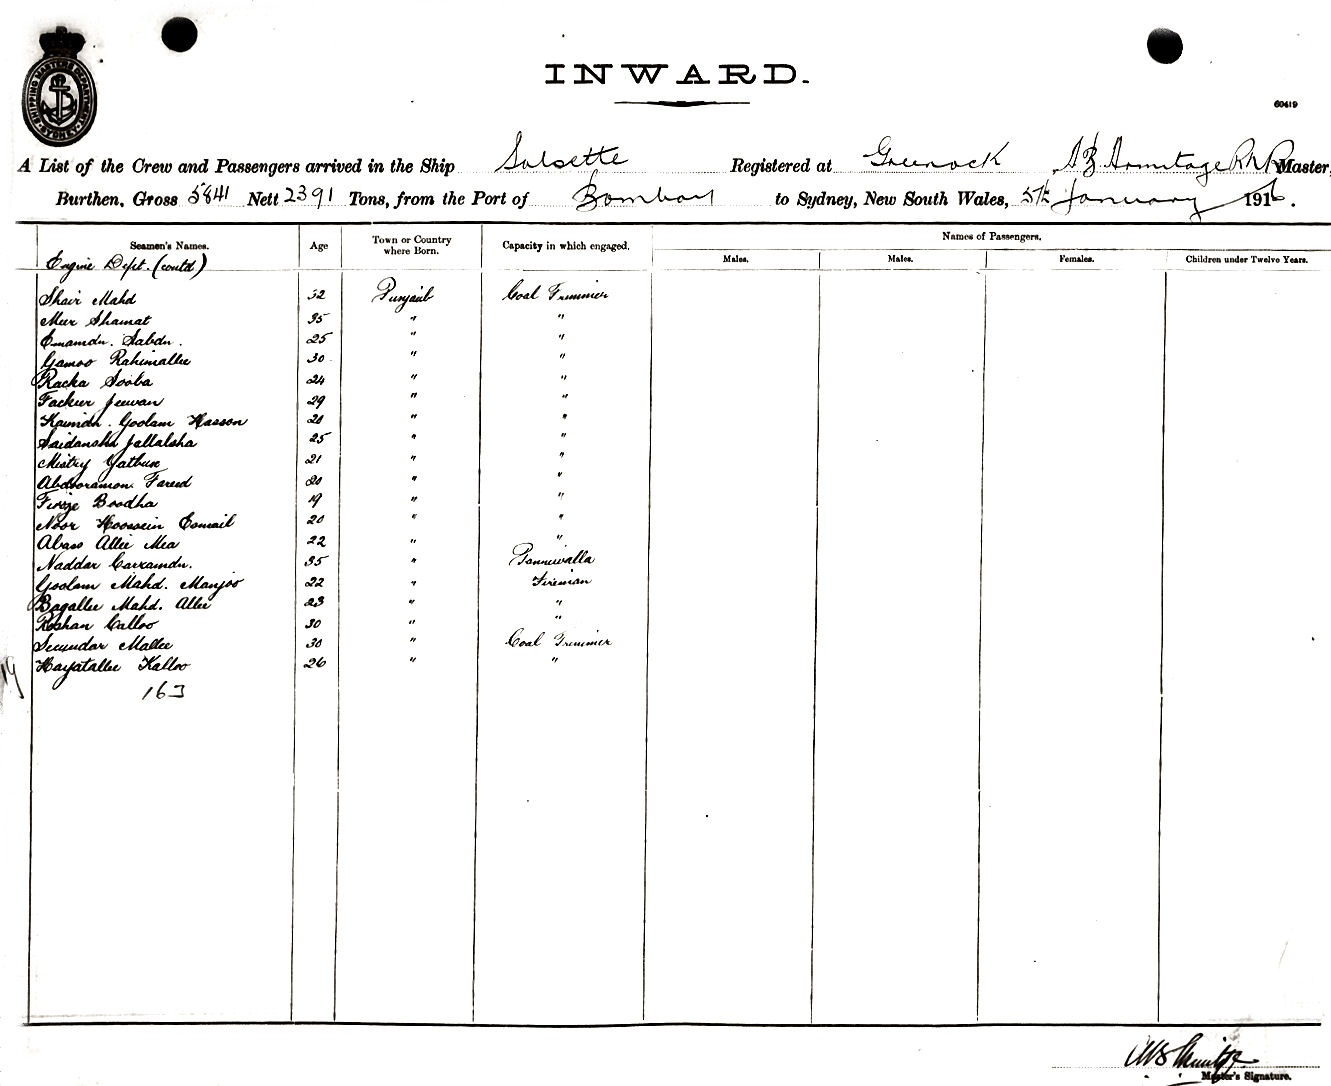 SHIPPING MASTERS DEPARTMENT SYDNEY
INWARD.
60419
A List of the Crew and Passengers arrived in the Ship Salsette Registered at Greenock A B Armitage R N R Master,
Burthen, Gross 5841 Nett 2391 Tons, from the Port of Bombay to Sydney, New South Wales, 5th January 1916.
Seamen's Names. Age Town or Country where Born. Capacity in which engaged. Names of Passengers.
Males. Males. Females. Children under Twelve Years.
Engine Dept. (contd)
Shair Mahd 32 Punjaub Coal Trimmer
Meer Shamat 35 " "
Emamdn. Sabdn. 25 " "
Gamoo Rahimallee 30 " "
Racka Sooba 24 " "
Fackeer Jeewan 29 " "
Kaimdn. Goolam Hasson " "
Saidansha Jallalsha 25 " "
Mistry 21 " "
Abdooramon Fareed 20 " "
Boodha 19 " "
Noor Hoossein Esmail 20 " "
Abass Allee Mea 22 " "
Naddar Carramdn. 35 " Pannewalla
Goolam Mahd. Manjoo 22 " Fireman
Bagallee Mahd. Allee 23 " "
Roshan Calloo 30 " "
Secundar Mallee 30 " Coal Trimmer
Hayatallee Kalloo 26 " "
19
163
Master's Signature.